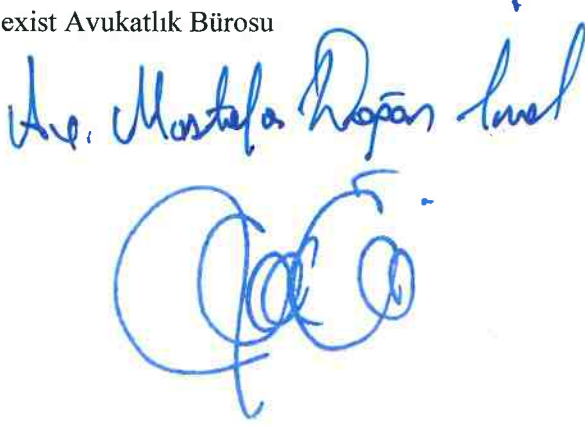 exist Avukatlık Bürosu
Av. Mustafa Doğan İnal